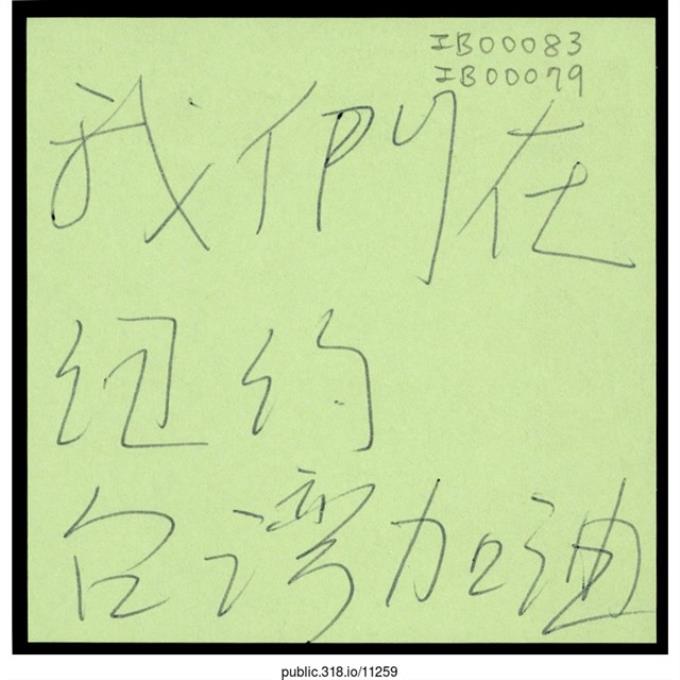 IB00083
IB00079
我們在
紐約
台灣加油
public.318.io/11259